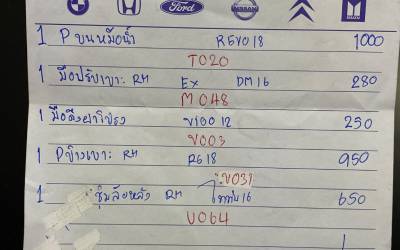 Ford
NISSAN
ISUZU
1 P บนหม้อน้ำ REVO18 1000
T020
1 มือปรับเบาะ RH EX DM16 280
M048
1 มือดึงฝาโปรง V100 12 250
V003
1 Pข้างเบาะ RH RG18 950
V031
1 ซุ้มล้อหลัง RH 16 650
V064